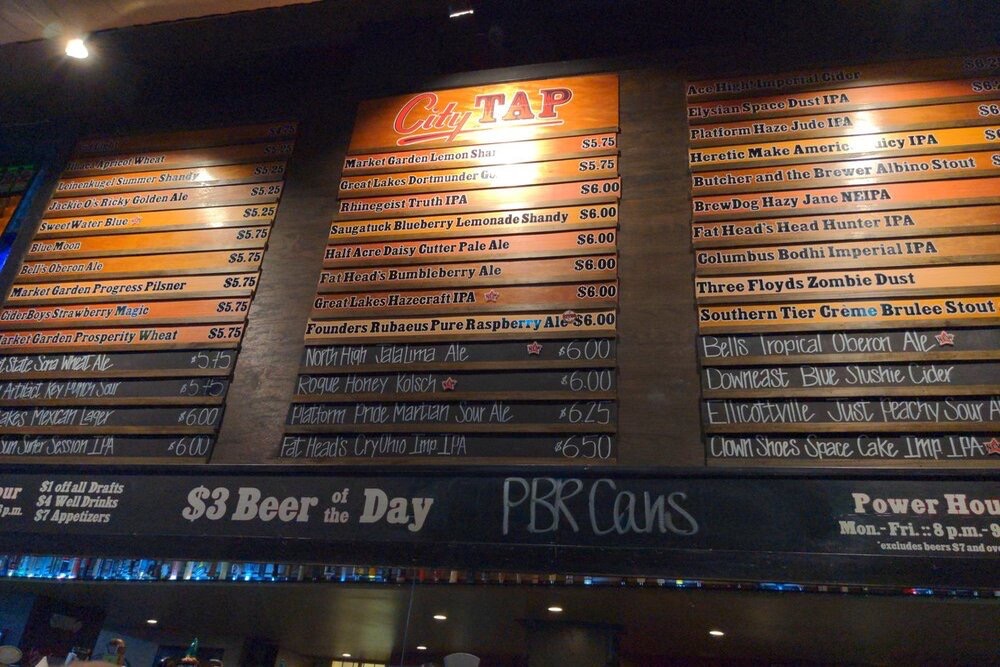 Apricot Wheat $5.25
Leinenkugel Summer Shandy $5.25
Jackie O's Ricky Golden Ale $5.25
SweetWater Blue $5.25
Blue Moon $5.75
Bell's Oberon Ale $5.75
Market Garden Progress Pilsner $5.75
CiderBoys Strawberry Magic $5.75
Market Garden Prosperity Wheat $5.75
State Sona Wheat Ale $5.75
Artifact Key Punch Sour
akes Mexican Lager $6.00
Surfer Session IPA $6.00
City TAP
Market Garden Lemon Shan $5.75
Great Lakes Dortmunder Go $5.75
Rhinegeist Truth IPA $6.00
Saugatuck Blueberry Lemonade Shandy $6.00
Half Acre Daisy Cutter Pale Ale $6.00
Fat Head's Bumbleberry Ale $6.00
Great Lakes Hazecraft IPA $6.00
Founders Rubaeus Pure Raspberry Ale $6.00
North High Jalalima Ale $6.00
Rogue Honey Kolsch $6.00
Platform Pride Martian Sour Ale $6.25
Fat Head's CryOhio Imp IPA $6.50
Ace High Imperial Cider $6.2
Elysian Space Dust IPA $6.
Platform Haze Jude IPA $6.
Heretic Make America Juicy IPA $6
Butcher and the Brewer Albino Stout $
BrewDog Hazy Jane NEIPA
Fat Head's Head Hunter IPA
Columbus Bodhi Imperial IPA
Three Floyds Zombie Dust
Southern Tier Crème Brulee Stout
Bells Tropical Oberon Ale
Downeast Blue Slushie Cider
Ellicottville Just Peachy Sour A
Clown Shoes Space Cake Imp IPA
our
p.m.
$1 off all Drafts
$4 Well Drinks
$7 Appetizers
$3 Beer of the Day PBR Cans
Power Hou
Mon.- Fri. :: 8 p.m.- 9
*excludes beers $7 and ov